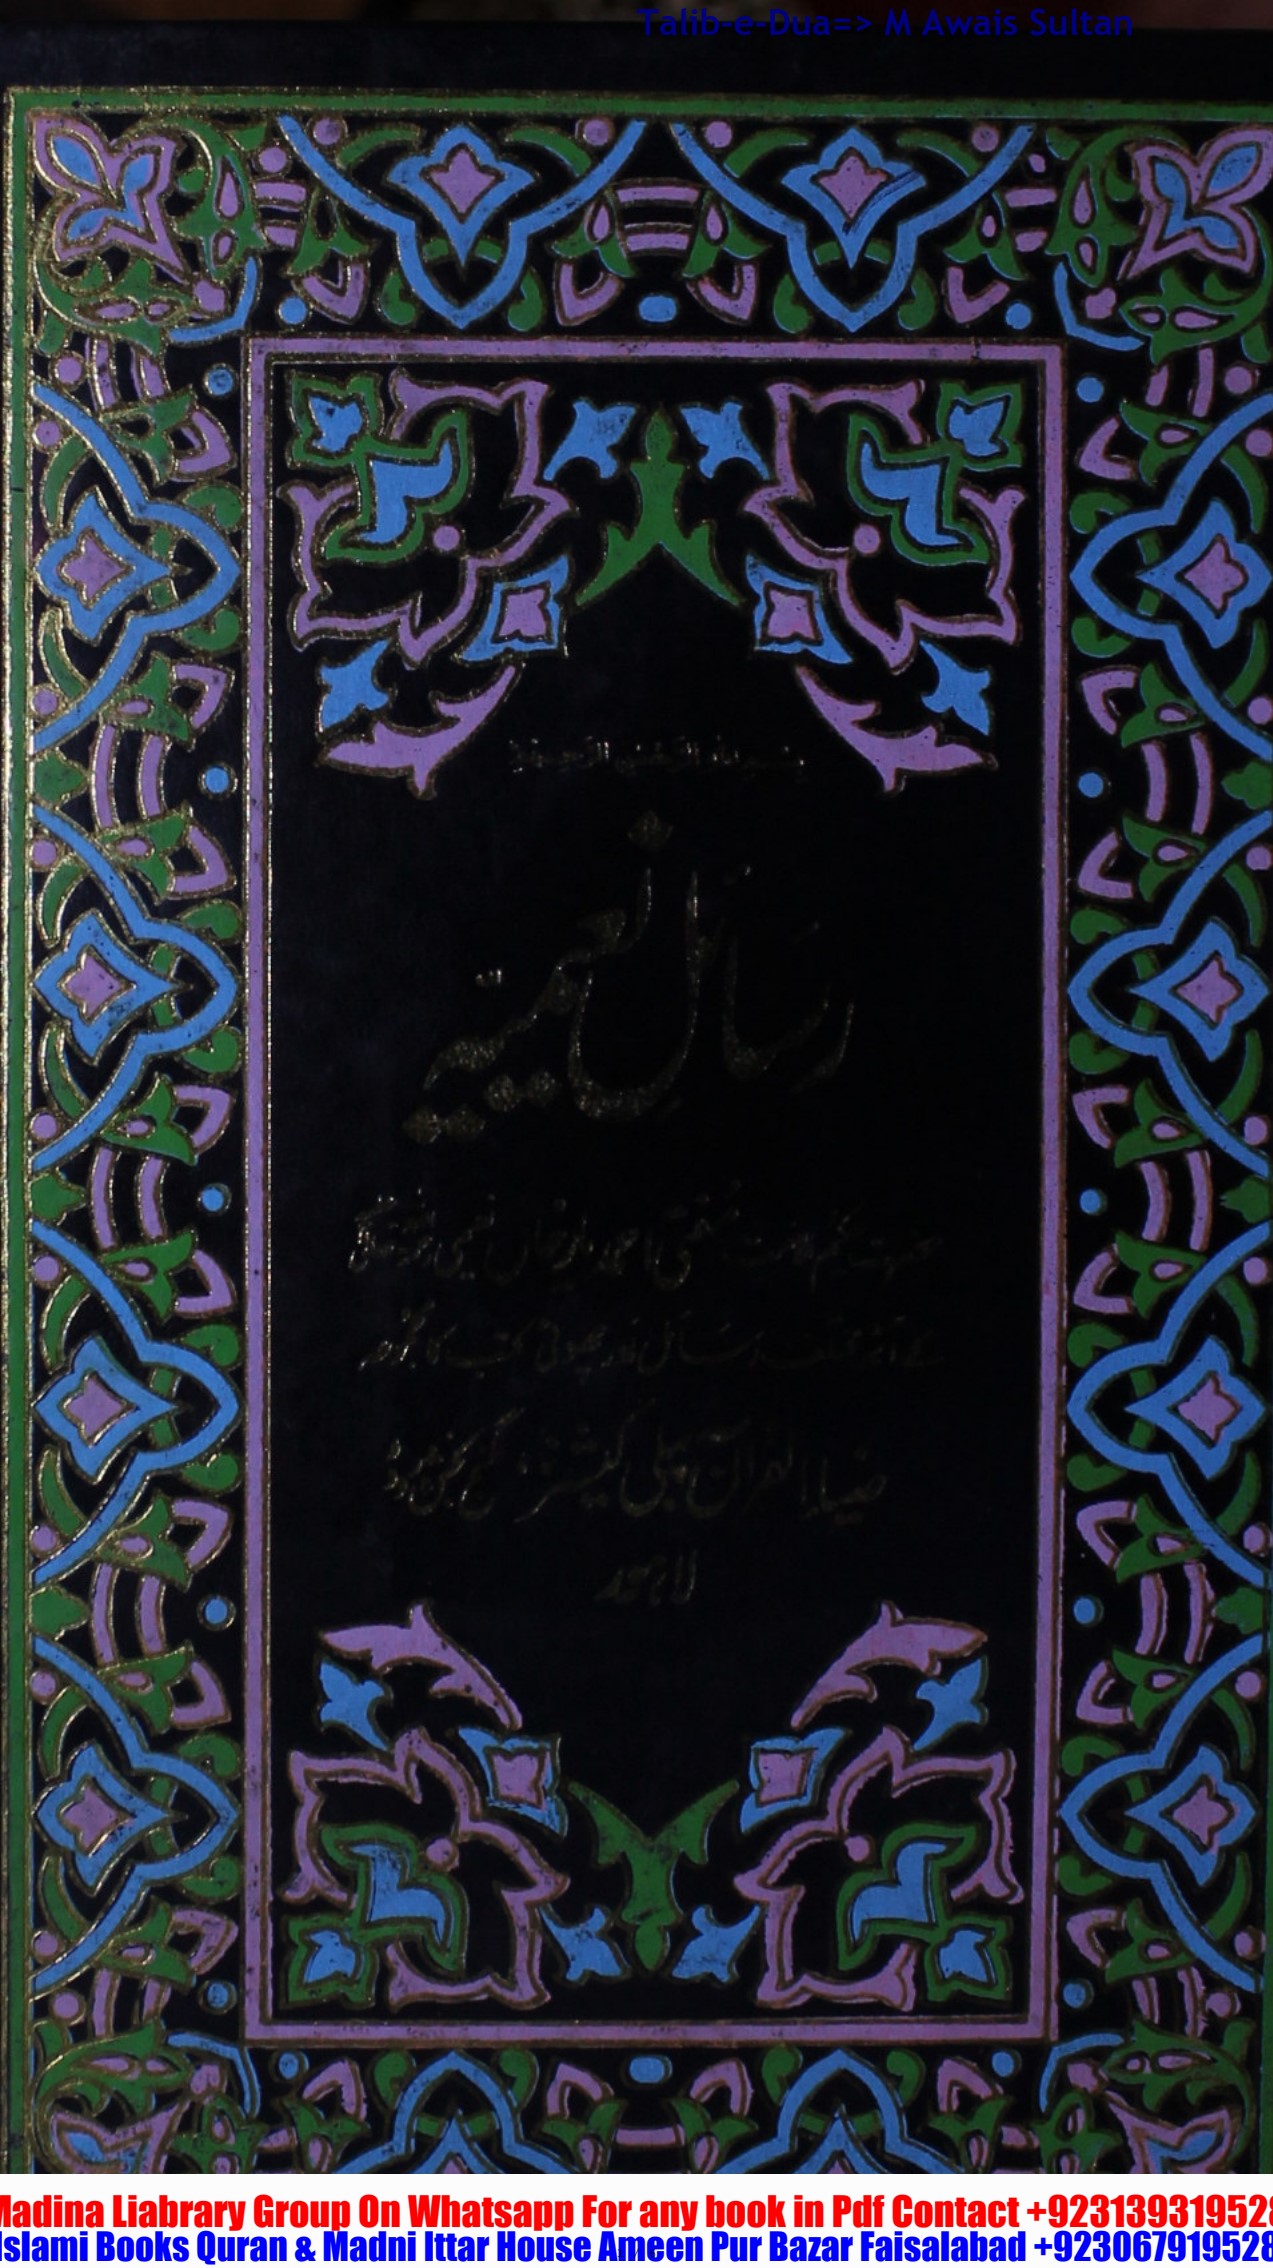 Talib-e-Dua=> M Awais Sultan
بسم الله الرحمن الرحيم
رسائل نعیمیہ
مفتی احمد یار خان نعیمی
رسائل اور چھوٹی کتب کا مجموعہ
ضیاء القرآن پبلی کیشنز، گنج بخش روڈ
لاہور
Madina Liabrary Group On Whatsapp For any book in Pdf Contact +923139319528
Islami Books Quran & Madni Ittar House Ameen Pur Bazar Faisalabad +923067919528